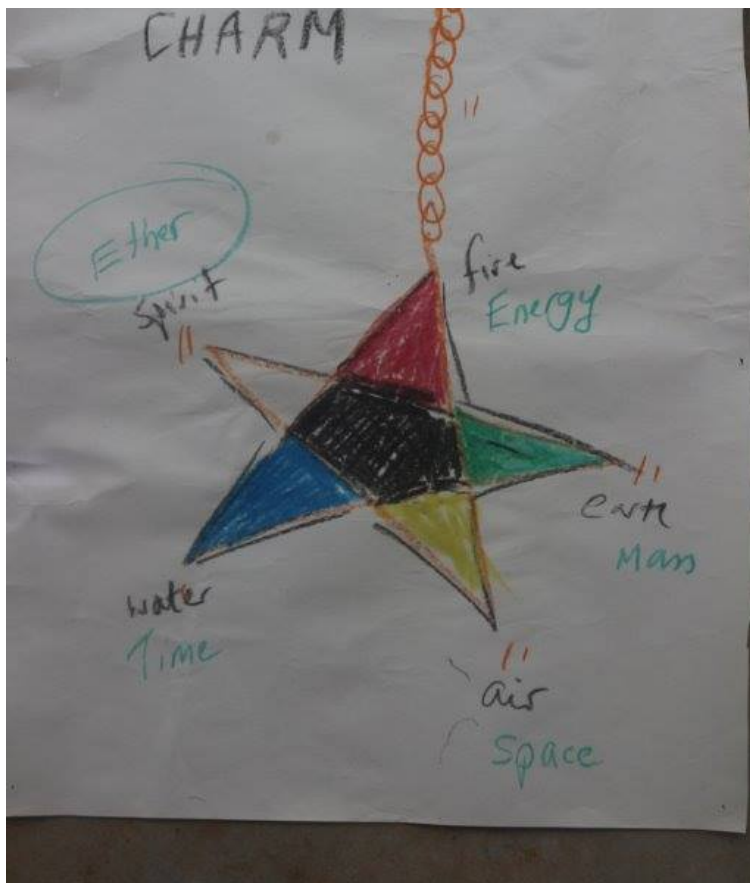 CHARM
Ether
spirit
fire
Energy
earth
Mass
water
Time
air
Space